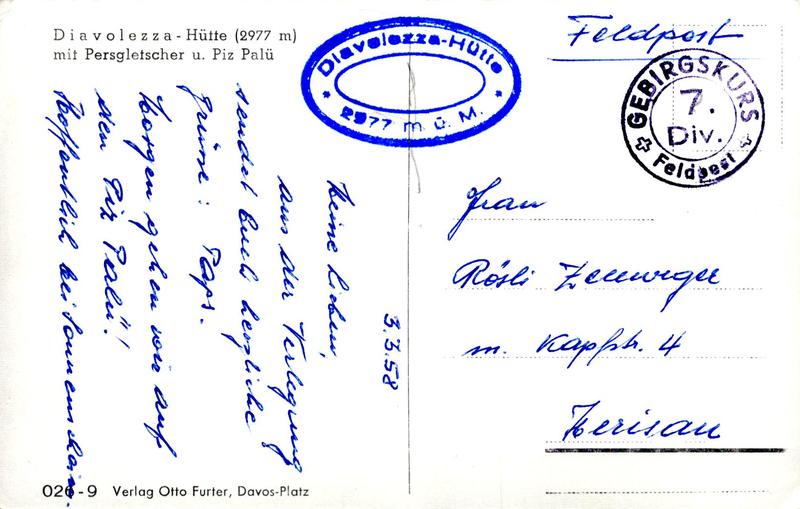 Diavolezza-Hütte (2977 m)
mit Persgletscher u. Piz Palü
Diavolezza-Hütte
* 2977 m ü. M. *
Feldpost
GEBIRGSKURS
7.
Div.
Feldpost
3.3.58
Meine Lieben,
aus der Verlegung
sendet Euch herzliche
Grüsse: Paps.
Morgen gehen wir auf
den Piz Palü!
Hoffentlich bei Sonnenschein.
Frau
Rösli
m. Kapfstr. 4
Herisau
026-9 Verlag Otto Furter, Davos-Platz